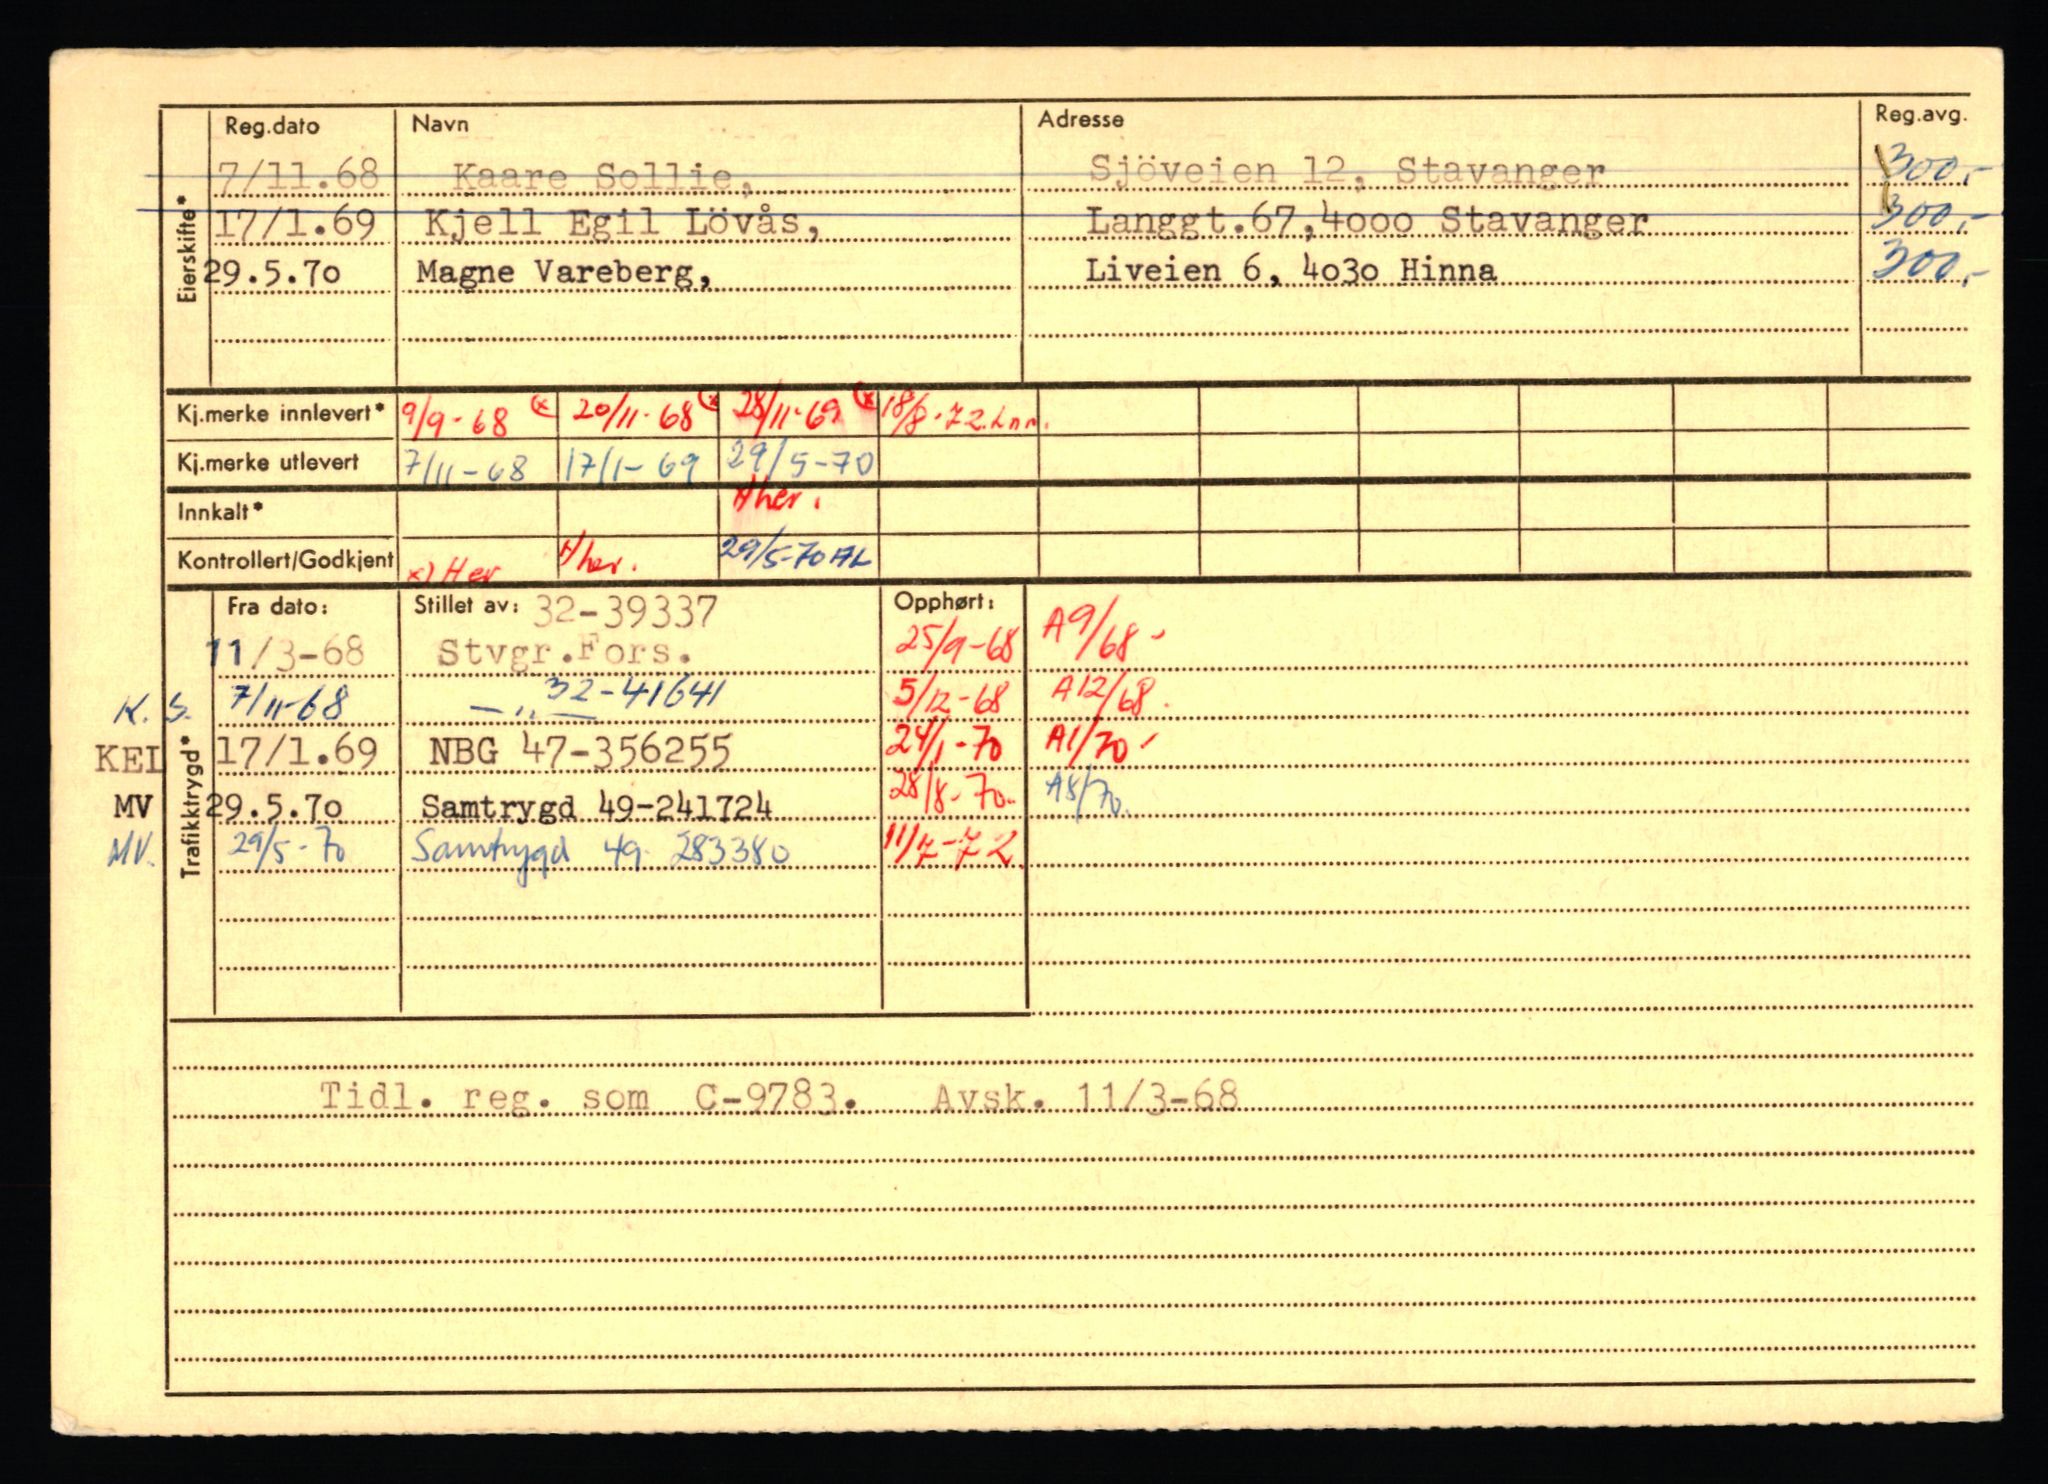 Reg.dato Navn Adresse Reg.avg.
Eierskifte*
7/11.68 Kaare Sollie, Sjöveien 12, Stavanger 300,-
17/1.69 Kjell Egil Lövås, Langgt.67,4000 Stavanger 300,-
29.5.70 Magne Vareberg, Liveien 6, 4030 Hinna 300,-
Kj.merke innlevert* 9/9-68 (x 20/11-68 (x 28/11-69 (x 18/8-72
Kj.merke utlevert 7/11-68 17/1-69 29/5-70
Innkalt* her.
Kontrollert/Godkjent x) Her her. 29/5-70
Trafikktrygd*
Fra dato: Stillet av: 32-39337 Opphørt:
11/3-68 Stvgr.Fors. 25/9-68 A9/68
K. S. 7/11-68 —„— 32-41641 5/12-68 A12/68.
KEL 17/1.69 NBG 47-356255 24/1-70 A1/70
MV 29.5.70 Samtrygd 49-241724 28/8-70. A8/70.
MV. 29/5-70 Samtrygd 49-283380 11/7-72
Tidl. reg. som C-9783. Avsk. 11/3-68